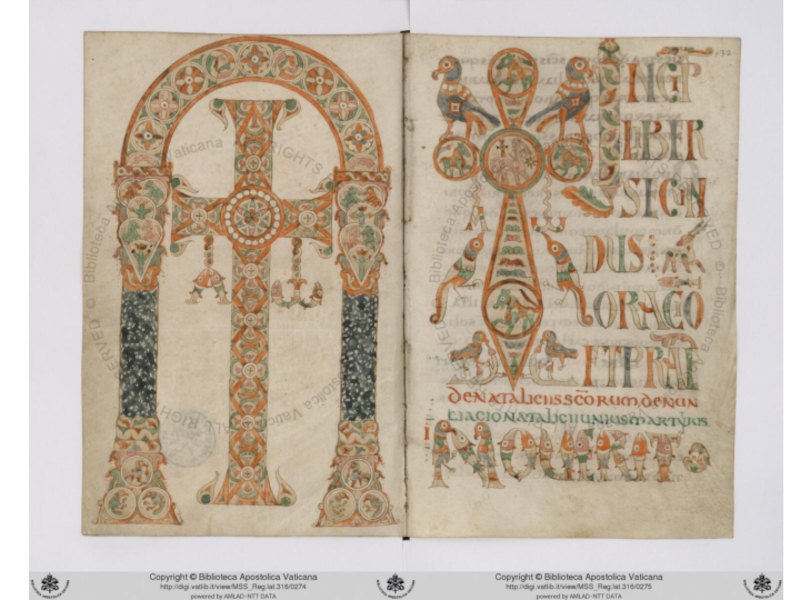 132
INCIP
LIBER
SECUN
DUS
ORACIO
ET PRAE
DENATALICIISSCORUM. DENUN
TIACIONATALICIIUNIUSMARTYRIS
Copyright © Biblioteca Apostolica Vaticana
http://digi.vatlib.it/view/MSS_Reg.lat.316/0274
powered by AMLAD-NTT DATA
Copyright © Biblioteca Apostolica Vaticana
http://digi.vatlib.it/view/MSS_Reg.lat.316/0275
powered by AMLAD-NTT DATA